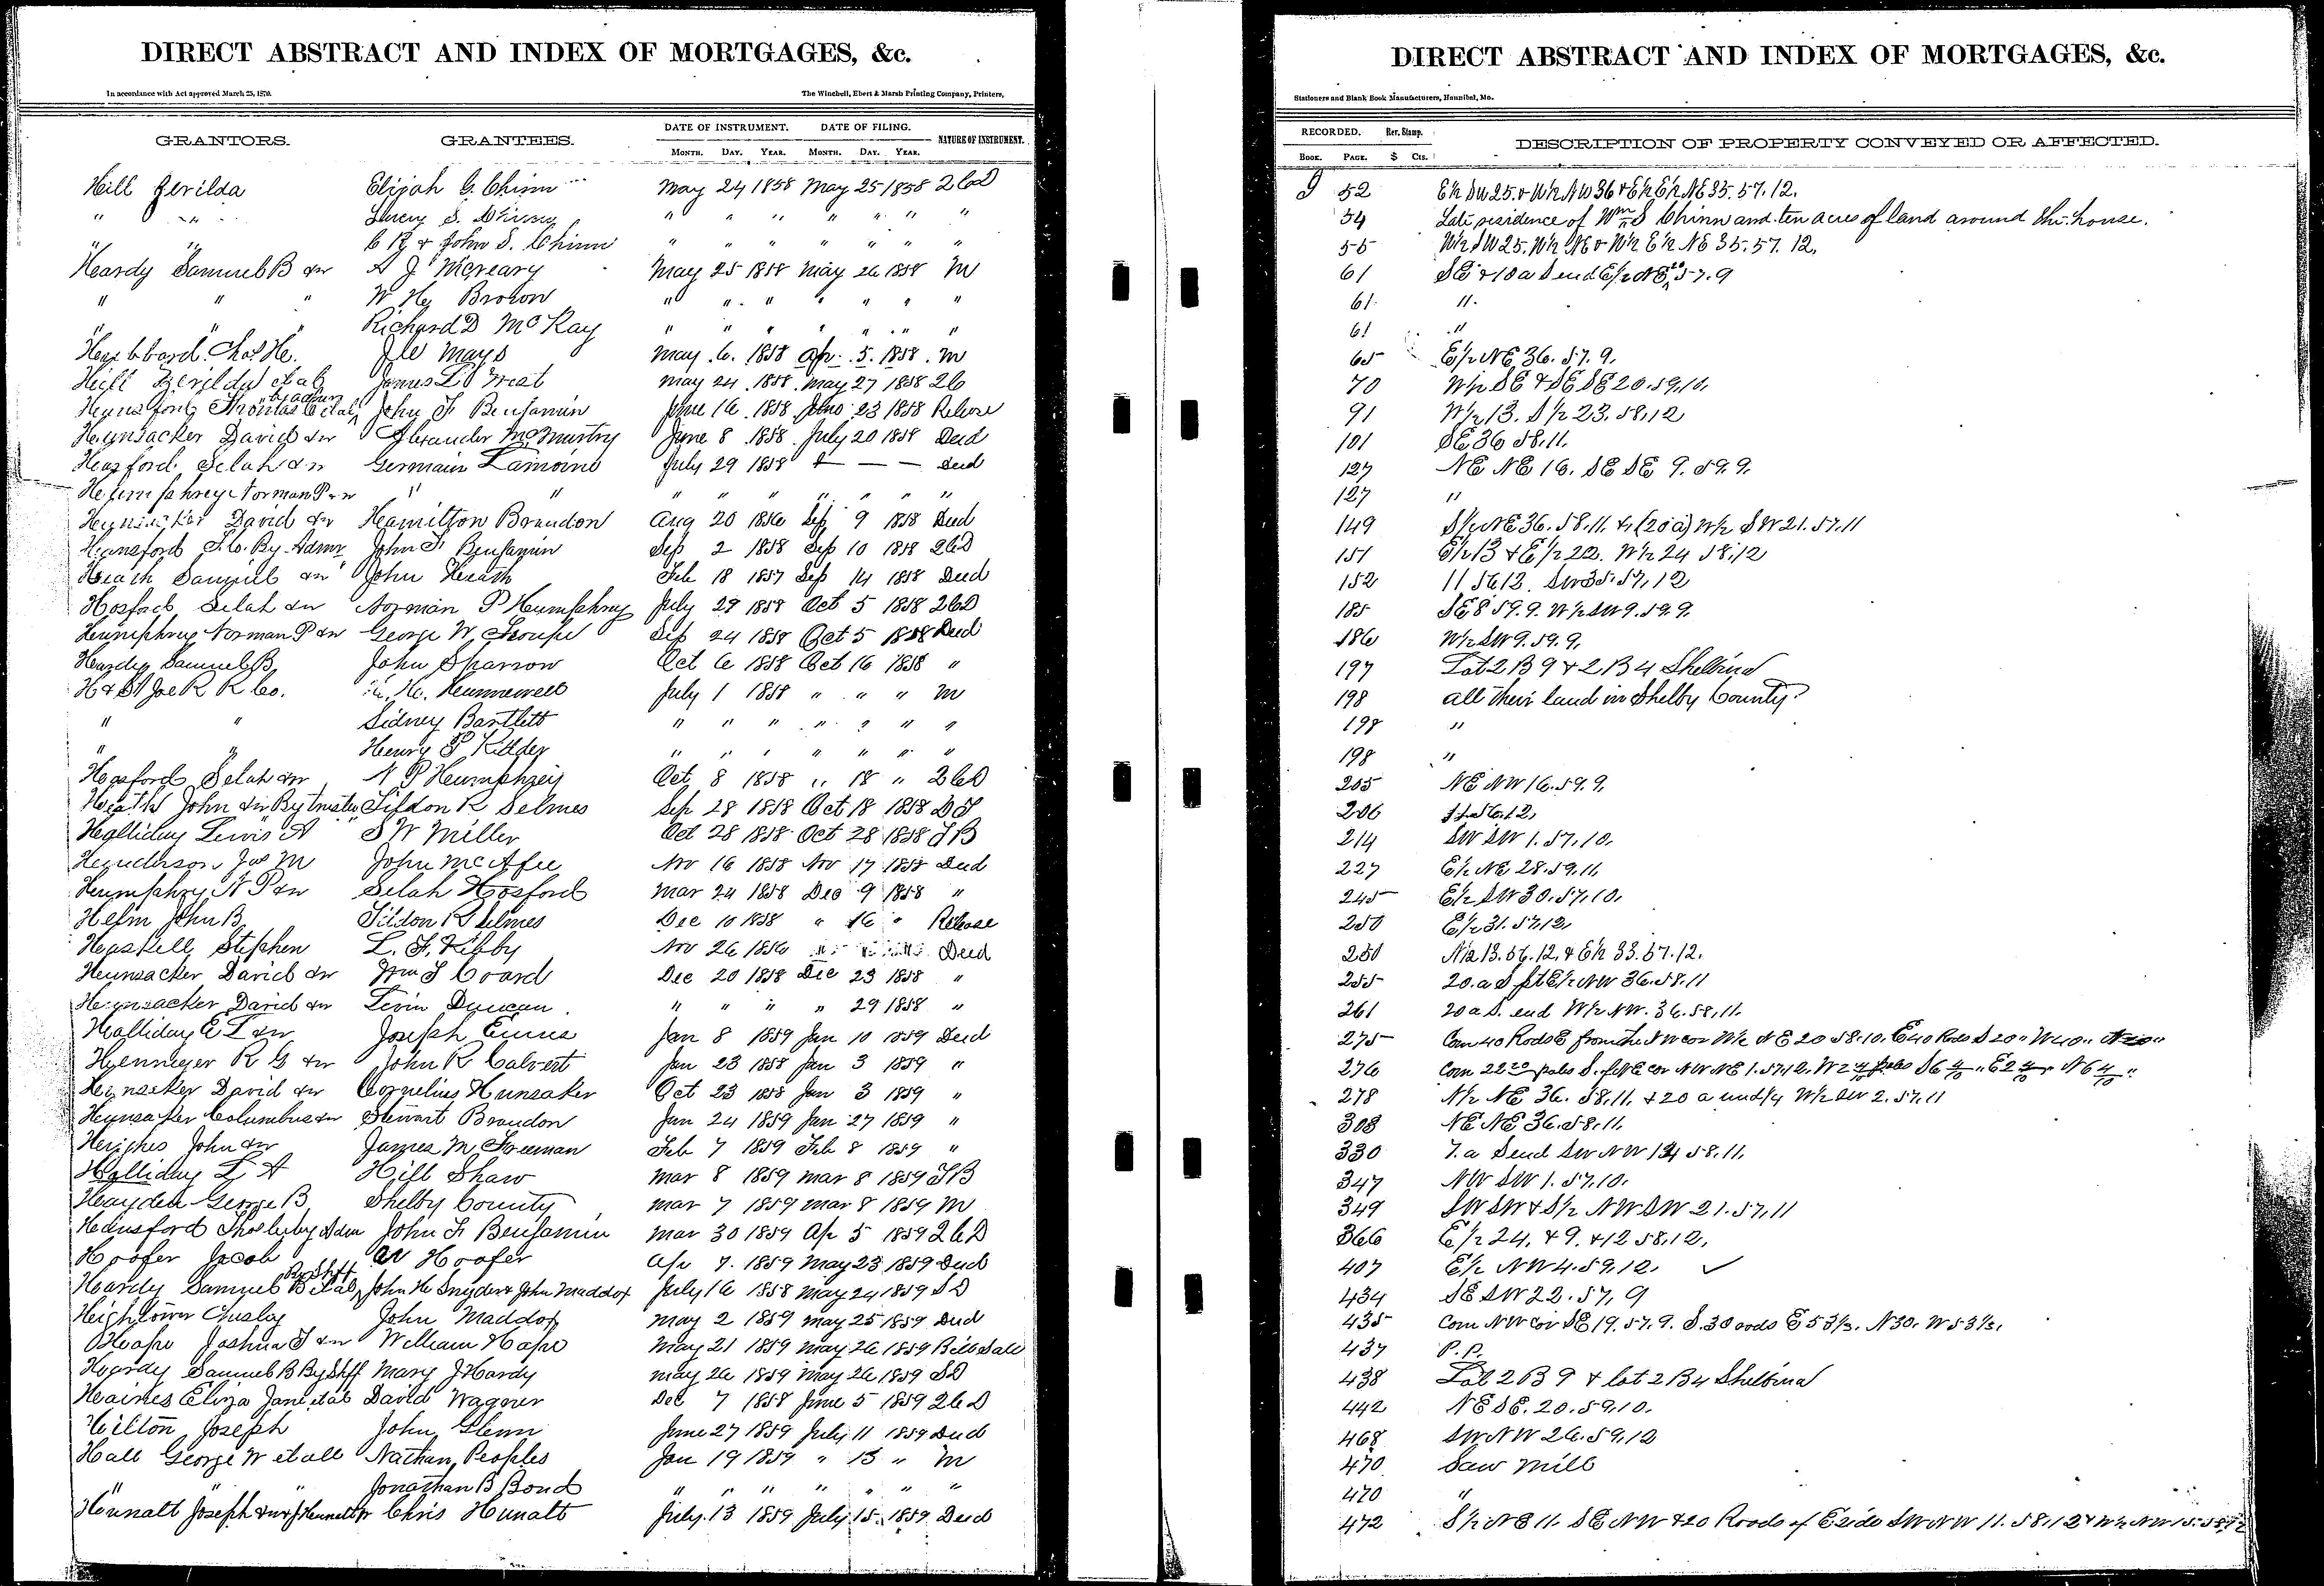 DIRECT ABSTRACT AND INDEX OF MORTGAGES, &c.
In accordance with Act approved March 25, 1870.
The Winchell, Ebert & Marsh Printing Company, Printers,
GRANTORS. GRANTEES. DATE OF INSTRUMENT. DATE OF FILING. NATURE OF INSTRUMENT.
MONTH. DAY. YEAR. MONTH. DAY. YEAR.
Hill Zerilda Elijah G. Chinn May 24 1858 May 25 1858 2 C D
" " Lucy S. Chinn " " " " " " "
" " C R & John S. Chinn " " " " " " "
Hardy Samuel B & w A J McCreary May 25 1858 May 26 1858 M
" " " W H Brown " " " " " " "
" " " Richard D McKay " " " " " " "
Hubbard Chas H. J W Mays May 6. 1858 Apr. 5. 1858. M
Hill Zerilda et al James L Great May 24. 1858. May 27 1858 2 C
Hansford Thomas C et al by admr John F. Benjamin June 16. 1858 June 23 1858 Release
Hunsacker David & w Alexander McMurtry June 8. 1858. July 20 1858 Deed
Hosford Selah & w Germain Lamoine July 29 1858 Deed
Humphrey Norman P & w " " " " " " " " "
Hunsacker David & w Hamilton Brandon Aug 20 1856 Sep 9 1858 Deed
Hansford T. C. By Admr John F. Benjamin Sep 2 1858 Sep 10 1858 2 C D
Heath Samuel & w John Heath Feb 18 1857 Sep 14 1858 Deed
Hosford Selah & w Norman P Humphrey July 29 1858 Oct 5 1858 2 C D
Humphrey Norman P & w George W Shoupe Sep 24 1858 Oct 5 1858 Deed
Hardy Samuel B John Sparrow Oct 6 1858 Oct 16 1858 "
H & St Joe R R Co. H. Hunnewell July 1 1858 " " " M
" " Sidney Bartlett " " " " " " "
" " Henry P Kidder " " " " " " "
Hosford Selah & w N P Humphrey Oct 8 1858 " 18 " 2 C D
Heath John & w By trustee Tildon R Selmes Sep 28 1858 Oct 18 1858 D T
Halliday Lewis A S W Miller Oct 28 1858 Oct 28 1858 T B
Henderson Jas M John McAfee Nov 16 1858 Nov 17 1858 Deed
Humphrey N P & w Selah Hosford Mar 24 1858 Dec 9 1858 "
Helm John B Tildon R Selmes Dec 10 1858 " 16 " Release
Haskell Stephen L. F. Kibby Nov 26 1856 Deed
Hunsacker David & w Wm S Coard Dec 20 1858 Dec 23 1858 "
Hunsacker David & w Levin Duncan " " " " 29 1858 "
Halliday E L & w Joseph Ennis Jan 8 1859 Jan 10 1859 Deed
R G & w John R Calvert Jan 23 1858 Jan 3 1859 "
Hunsacker David & w Cornelius Hunsaker Oct 23 1858 Jan 3 1859 "
Hunsacker Columbus & w Stewart Brandon Jan 24 1859 Jan 27 1859 "
Hughes John & w James M Freeman Feb 7 1859 Feb 8 1859 "
Halliday L A Hill Shaw Mar 8 1859 Mar 8 1859 T B
Hayden George B Shelby County Mar 7 1859 Mar 8 1859 M
Hansford Thos C by Adm John F. Benjamin Mar 30 1859 Ap 5 1859 2 C D
Hoofer Jacob W Hoofer Apr 7. 1859 May 23 1859 Deed
Hardy Samuel B et al By Shff John H Snyder & John Maddox July 16 1858 May 24 1859 S D
Hightower Chusley John Maddox May 2 1859 May 25 1859 Deed
Hape Joshua T & w William Hape May 21 1859 May 26 1859 Bill Sale
Hardy Samuel B By Shff Mary J Hardy May 26 1859 May 26 1859 S D
Haines Eliza Jane et al David Wagner Dec 7 1858 June 5 1859 2 C D
Hilton Joseph John Glenn June 27 1859 July 11 1859 Deed
Hall George W et all Nathan Peoples Jan 19 1859 " 13 " M
" " Jonathan B Bond " " " " " " "
Hunnalt Joseph Chris Hunalt July. 13 1859 July. 15. 1859 Deed
DIRECT ABSTRACT AND INDEX OF MORTGAGES, &c.
Stationers and Blank Book Manufacturers, Hannibal, Mo.
RECORDED. Rev. Stamp. DESCRIPTION OF PROPERTY CONVEYED OR AFFECTED.
BOOK. PAGE. $ Cts.
52 E½ SW 25. & W½ NW 36 & E½ E½ NE 35. 57. 12.
54 Late residence of Wm S Chinn and ten acres of land around the house.
55 W½ SW 25. W½ NE & W½ E½ NE 35. 57. 12.
61 SE & 10 a S end E½ NE 57. 9
61. ".
61 "
65 E½ NE 36. 57. 9.
70 W½ SE & SE SE 20. 59. 10.
91 W½ 13. S½ 23. 58. 12
101 SE 36 58. 11.
127 NE NE 16. SE SE 9. 59. 9.
127 "
149 S½ NE 36. 58. 11. & (20 a) W½ SW 21. 57. 11
151 E½ 13 & E½ 22. W½ 24 58. 12
152 11 56 12. SW 35. 57. 12
185 SE 8 59. 9. W½ SW 9. 59. 9.
186 W½ SW 9. 59. 9.
197 Lot 2 B 9 & 2 B 4 Shelbina
198 all their land in Shelby County
198 "
198 "
205 NE NW 16. 59. 9.
206 11. 56. 12.
214 SW SW 1. 57. 10.
227 E½ NE 28. 59. 11.
245 E½ SW 30. 57. 10.
250 E½ 31. 57. 12.
250 N½ 13. 56. 12. & E½ 33. 57. 12.
255 20. a S pt E½ NW 36. 58. 11
261 20 a S. end W½ NW. 36. 58. 11.
275 Com 40 Rods E from the NW cor W½ NE 20 58. 10. E 40 Rods S 20 " W 40 " N 20 "
276 Com 22 20 poles S. of NE cor NW NE 1. 57. 12.
278 N½ NE 36. 58. 11. & 20 a und ¼ W½ SW 2. 57. 11
308 NE NE 36. 58. 11.
330 7. a S end SW NW 58. 11.
347 NW SW 1. 57. 10.
349 SW SW & S½ NW SW 21. 57. 11
366 E½ 24. & 9. & 12 58. 12.
407 E½ NW 4. 59. 12. ✓
434 SE SW 22. 57. 9
435 Com NW cor SE 19. 57. 9. S. 30 rods E 53⅓. N 30. W 53⅓.
437 P. P.
438 Lot 2 B 9 & lot 2 B 4 Shelbina
442 NE SE. 20. 59. 10.
468 SW NW 26. 59. 12
470 Saw Mill
470 "
472 S½ NE 11. SE NW & 20 Roods of E side SW NW 11. 58. 12 & W½ NW